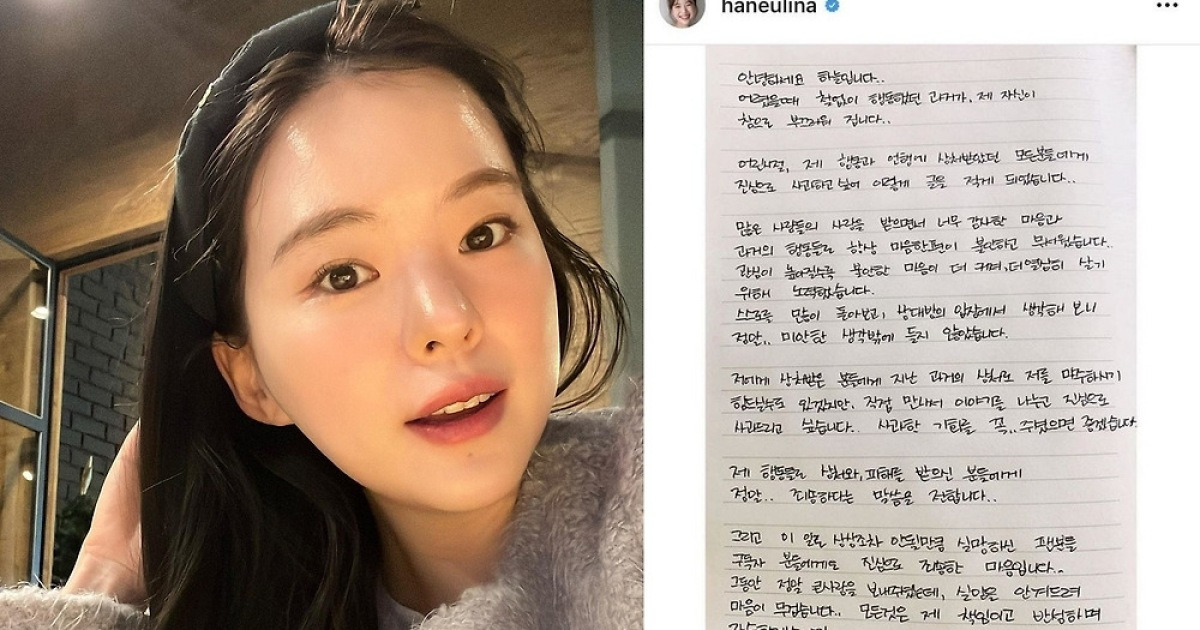 haneulina
안녕하세요 하늘입니다..
어렸을때 철없이 행동했던 과거가, 제 자신이
참으로 부끄러워 집니다..
어린시절, 제 행동과 언행에 상처받았던 모든분들에게
진심으로 사과하고 싶어 이렇게 글을 적게 되었습니다..
많은 사람들의 사랑을 받으면서 너무 감사한 마음과
과거의 행동들로 항상 마음한편이 불안하고 무서웠습니다..
관심이 높아질수록 불안한 마음이 더 커져, 더열심히 살기
위해 노력했습니다.
스스로를 많이 돌아보고, 상대방의 입장에서 생각해 보니
정말.. 미안한 생각밖에 들지 않았습니다.
저에게 상처받은 분들에게 지난 과거의 상처로 저를 마주하시기
힘드실수도 있겠지만, 직접 만나서 이야기를 나누고 진심으로
사과드리고 싶습니다.. 사과할 기회를 꼭,, 주셨으면 좋겠습니다.
제 행동들로 상처와, 피해를 받으신 분들에게
정말.. 죄송하다는 말씀을 전합니다..
그리고 이 일로 상상조차 안될만큼 실망하신 팬분들
구독자 분들에게도 진심으로 죄송한 마음입니다..
그동안 정말 큰사랑을 보내주셨는데, 실망을 안겨드려
마음이 무겁습니다.. 모든것은 제 책임이고 반성하며